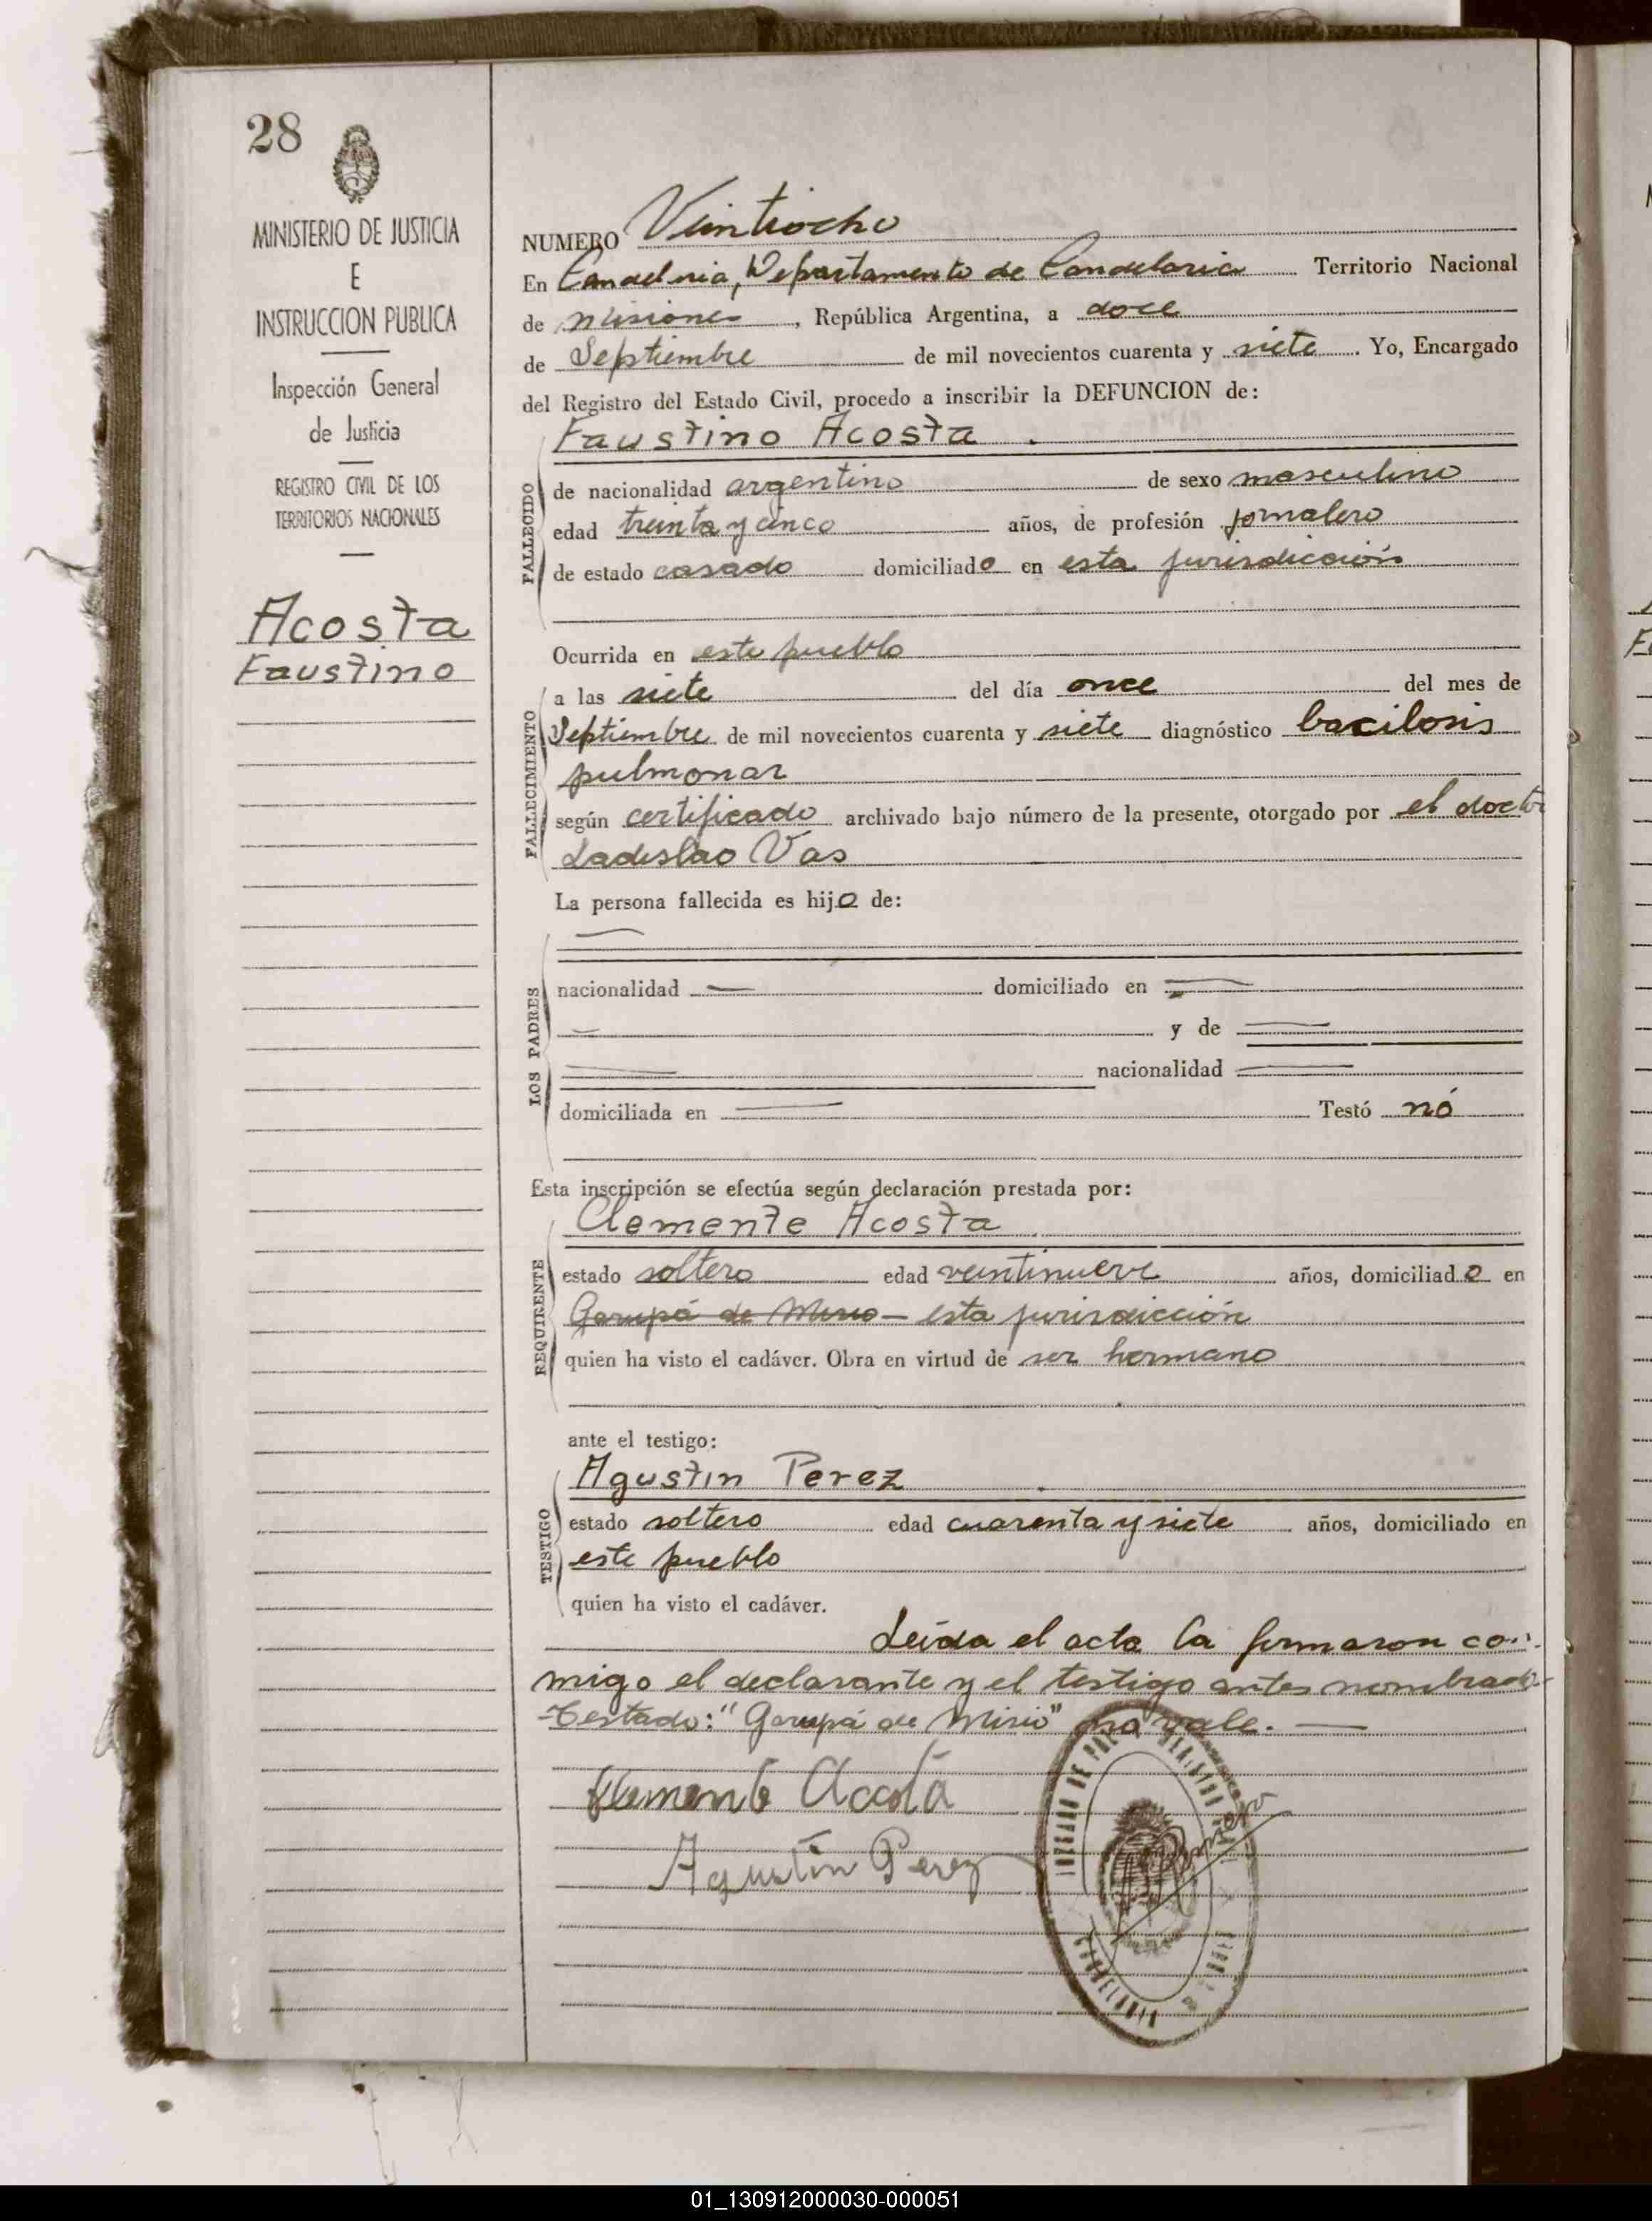 28
MINISTERIO DE JUSTICIA
E
INSTRUCCION PUBLICA
Inspección General
de Justicia
REGISTRO CIVIL DE LOS
TERRITORIOS NACIONALES
Acosta
Faustino
NUMERO Veintiocho
En Candelaria, Departamento de Candelaria Territorio Nacional
de Misiones, República Argentina, a doce
de Septiembre de mil novecientos cuarenta y siete. Yo, Encargado
del Registro del Estado Civil, procedo a inscribir la DEFUNCION de:
Faustino Acosta
FALLECIDO
de nacionalidad argentino de sexo masculino
edad treinta y cinco años, de profesión jornalero
de estado casado domiciliado en esta jurisdicción
Ocurrida en este pueblo
FALLECIMIENTO
a las siete del día once del mes de
Septiembre de mil novecientos cuarenta y siete diagnóstico bacilosis
pulmonar
según certificado archivado bajo número de la presente, otorgado por el doctor
Ladislao Vas
La persona fallecida es hijo de:
LOS PADRES
nacionalidad — domiciliado en —
— y de —
— nacionalidad —
domiciliada en — Testó nó
Esta inscripción se efectúa según declaración prestada por:
Clemente Acosta
REQUIRENTE
estado soltero edad veintinueve años, domiciliado en
Garupá de Misio — esta jurisdicción
quien ha visto el cadáver. Obra en virtud de ser hermano
ante el testigo:
Agustin Perez
TESTIGO
estado soltero edad cuarenta y siete años, domiciliado en
este pueblo
quien ha visto el cadáver.
Leída el acta la firmaron con
migo el declarante y el testigo antes nombrado
-Testado: "Garupá de Misio" no vale. —
Clemente Acosta
Agustin Perez
JUZGADO DE PAZ
01_130912000030-000051